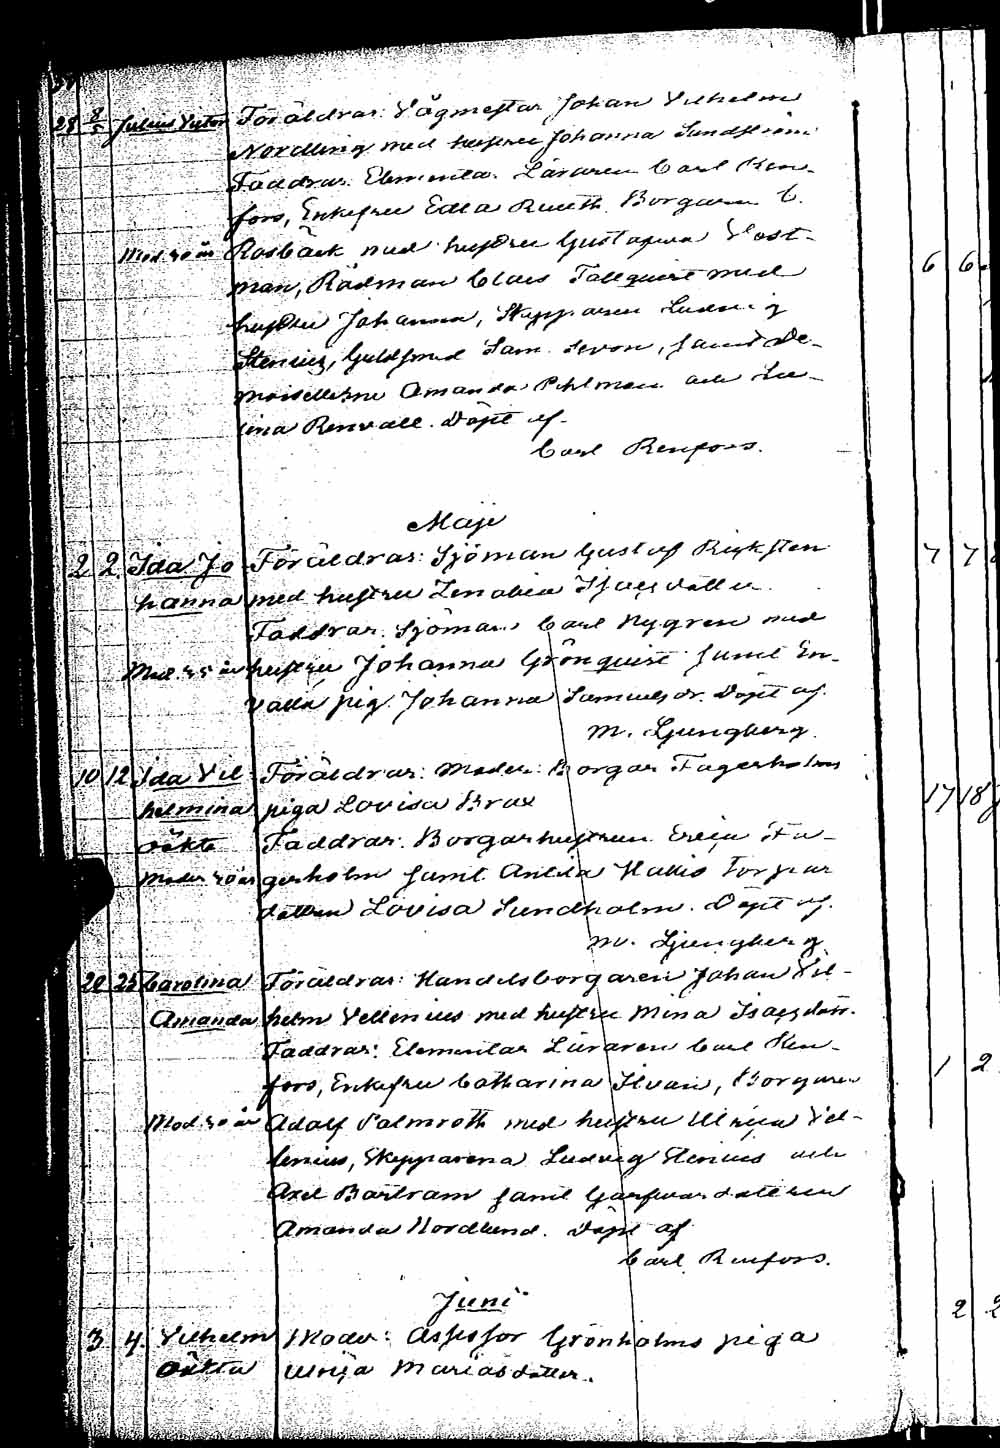 28 8/5 Julius Victor Föräldrar: Vågmestar Johan Vilhelm
Nordling med hustru Johanna Sundström
Faddrar: Elementar Läraren Carl Ren-
fors, Enkefru Edla Rueth. Borgaren C.
Mod. 30 år Rosbäck med hustru Gustafva Vest-
man, Rådman Claes Tallquist med
hustru Johanna, Skepparen Ludvig
Stenius, Guldsmed Sam. Levon, samt De-
moisellerne Amanda Pehlman och
lina Renvall. Döpt af.
Carl Renfors.
Maji
2 2. Ida Jo- Föräldrar: Sjöman Gustaf Ricksten
hanna med hustru Zenobia Isaksdotter.
Faddrar: Sjöman Carl Nygren med
Mod. 35 år hustru Johanna Grönquist samt En-
vald pig. Johanna Samuelsdr. Döpt af.
M. Ljungberg.
10 12 Ida Vil- Föräldrar: Moder: Borgar Fagerholms
helmina piga Lovisa Brax
oäkta Faddrar: Borgarhustrun Erica Fa-
Moder 30 år gerholm samt Torpar
dottren Lovisa Sundholm. Döpt af.
M. Ljungberg
20 25 Carolina Föräldrar: Handelsborgaren Johan Vil-
Amanda helm Vellenius med hustru Mina Isaksdottr.
Faddrar: Elementar Läraren Carl Ren-
fors, Enkefru Catharina Ilvan, Borgaren
Mod. 30 år Adolf Palmroth med hustru Ulrica Vel-
lenius, Skepparena Ludvig Stenius och
Axel Bartram samt Garfvardottren
Amanda Nordlund. Döpt af
Carl Renfors.
Juni
3 4. Vilhelm Moder: Assessor Grönholms piga
oäkta Ulrica Mariasdotter.
6 6
7 7
17 18
1 2
2 2